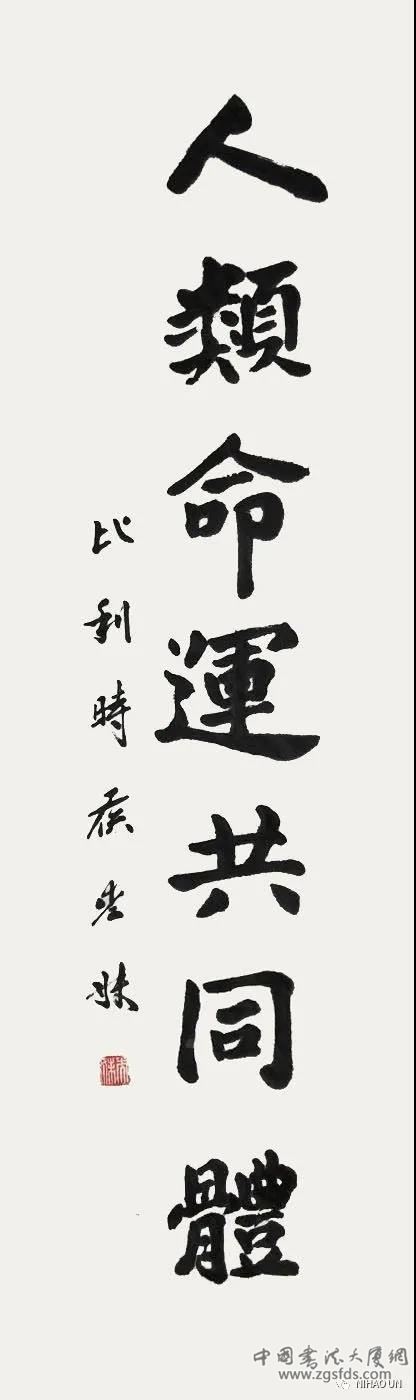 人類命運共同體
比利時
中国书法大厦網
www.zgsfds.com
NIHAO UN